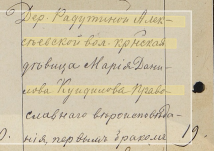 Дер. Радутиной Алек-
сѣевской вол. кр-нская
дѣвица Марія Дани-
лова Кундикова Право-
славнаго вѣроисповѣда-
нія, первымъ бракомъ 19.